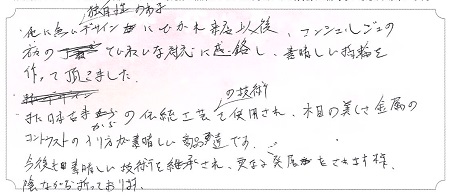 独自性のある
他に無いデザインにひかれ来店以後、コンシェルジュの
方の ていねいな対応に感銘し、素晴しい指輪を
作って頂きました。
の技術
また日本古来からの伝統工芸で使用され、木目の美しさ金属の
コントラストの 方が素晴しい です。
今後も素晴しい技術を継承され、更なる発展をされます様、
陰ながら祈っております。